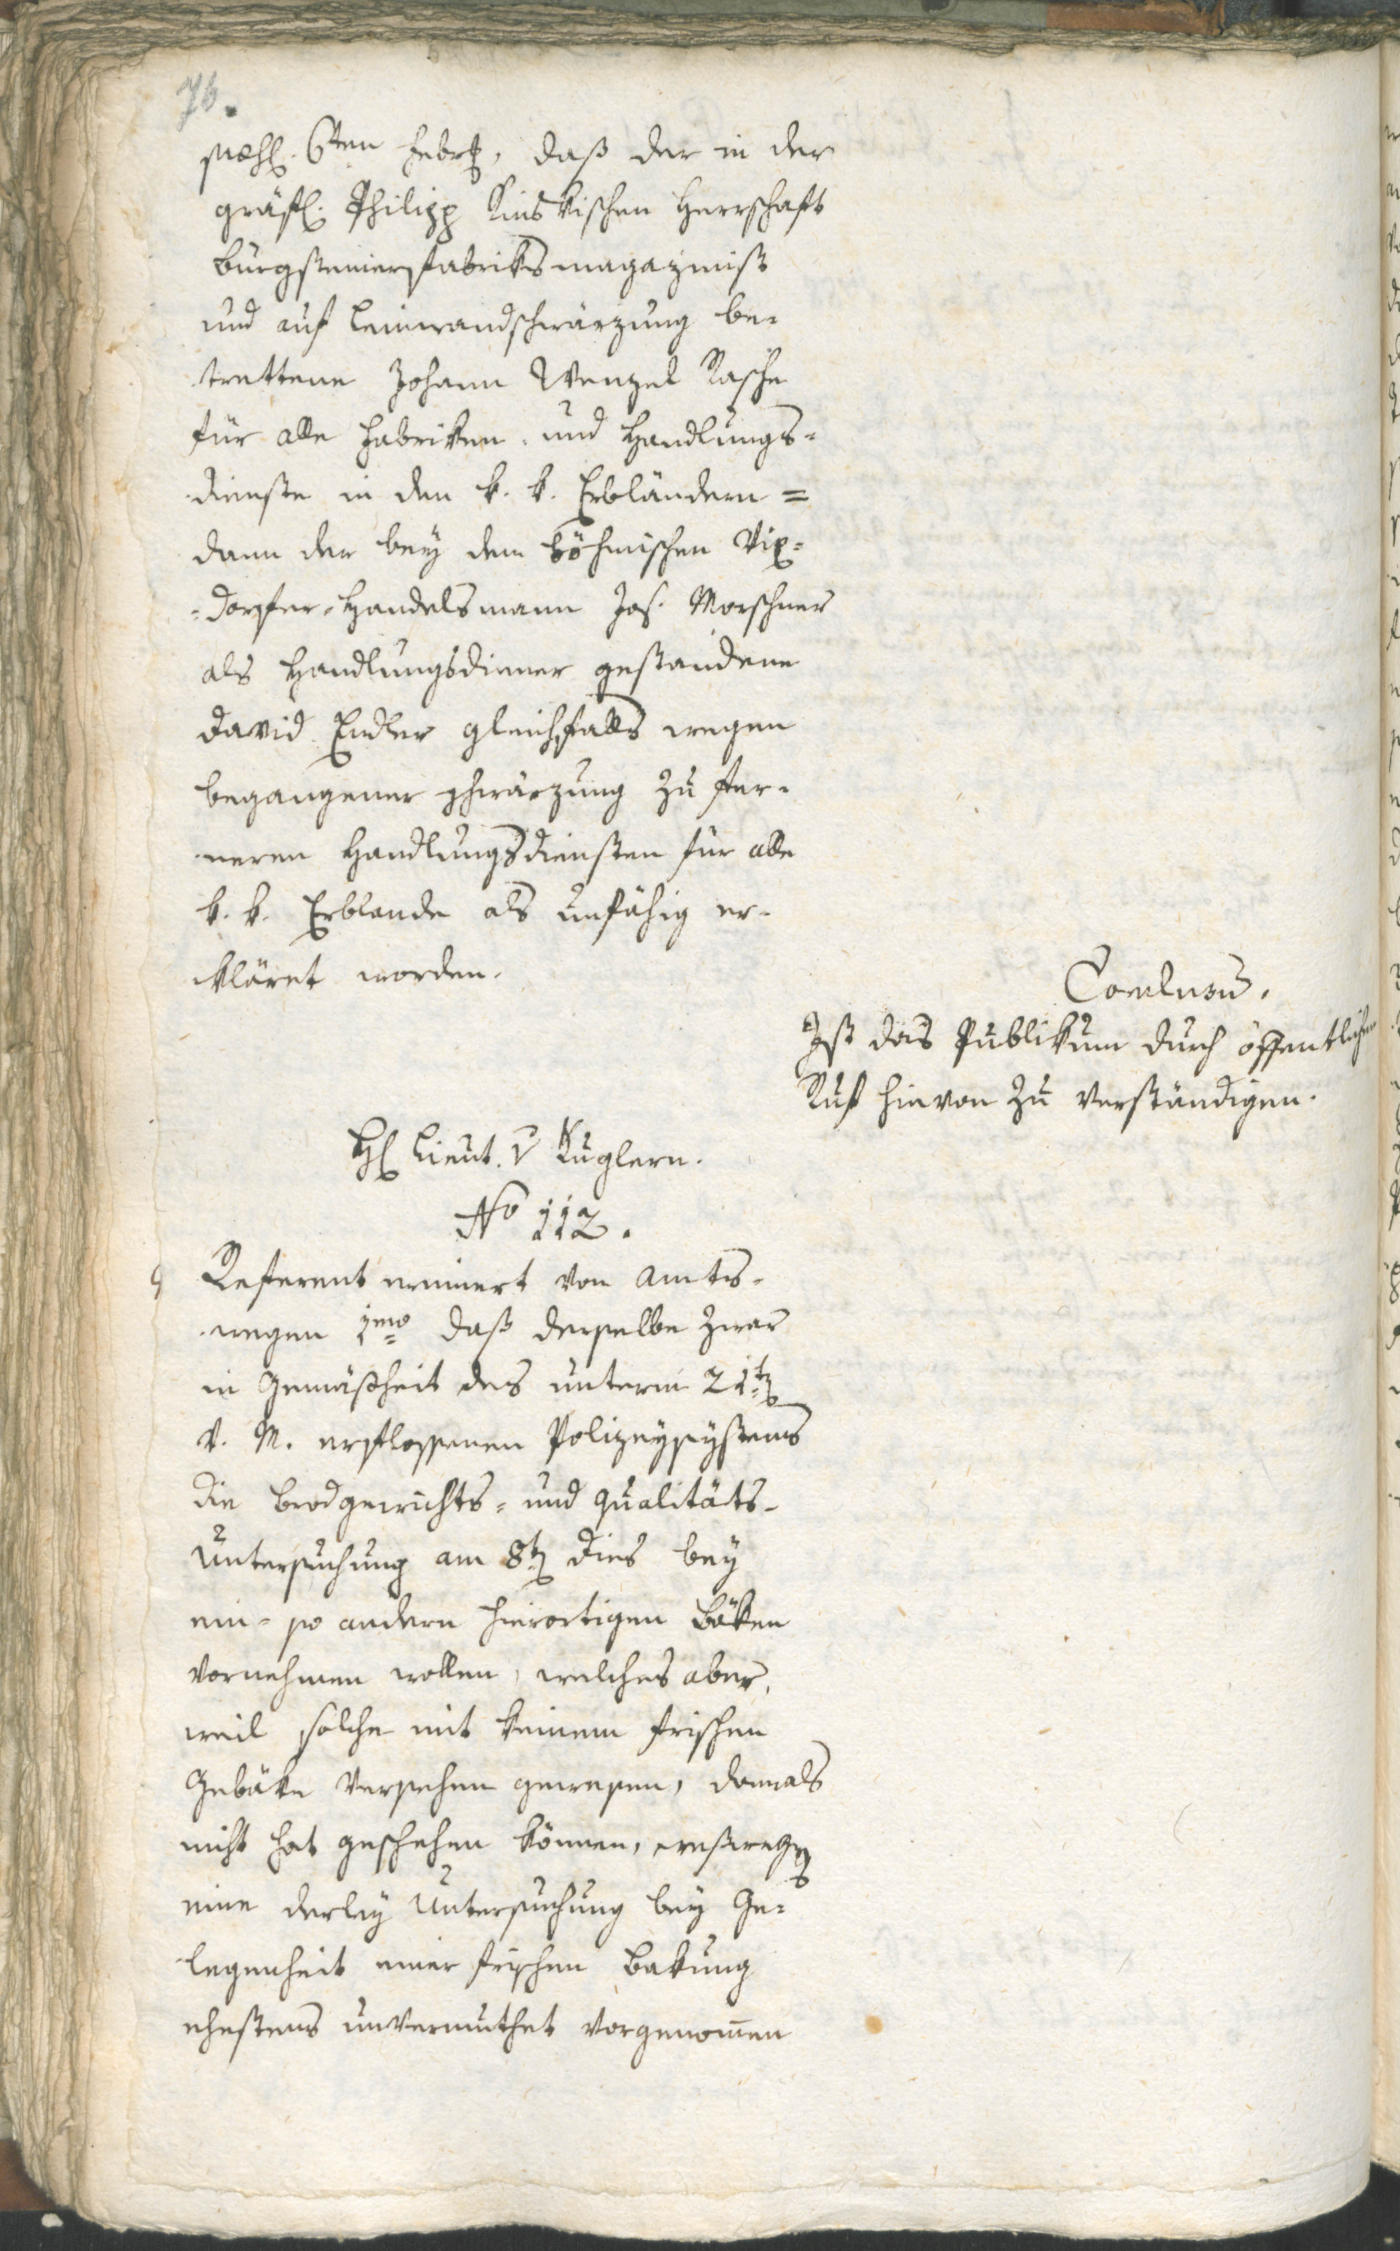 76.
præs. 6ten Febr., daß der in der
gräfl. Philipp Kinskischen Herrschaft
Bürgsteiner fabriksmagazinist
und auf Leinwandschwärzung be-
trettene Johann Wenzel Rasche
für alle Fabriken- und Handlungs-
dienste in den k. k. Erbländern =
dann der bey dem böhmischen Nix-
-dorfer-Handelsmann Jos. Morschner
als Handlungsdiener gestandene
David Endler gleichfalls wegen
begangener schwärzung zu fer-
neren Handlungsdiensten für alle
k. k. Erblande als unfähig er-
kläret worden.
Conclusum.
Ist das Publikum durch öffentlichen
Ruf hievon zu verständigen.
H. Lieut. v Kuglern.
No 112.
Referent erinnert von Amts-
wegen 1mo daß derselbe zwar
in Gemäßheit des unterm 21t
v. M. erflossenen Polizeysystems
die Brodgewichts- und qualitäts-
Untersuchung am 8t dies bey
ein- so andern hierortigen Bäken
vornehmen wollen, welches aber,
weil solche mit keinem frischen
Gebäke versehen gewesen, damals
nicht hat geschehen können, weßwegen
eine derley Untersuchung bey Ge-
legenheit einer frischen Bakung
ehestens unvermuthet vorgenommen